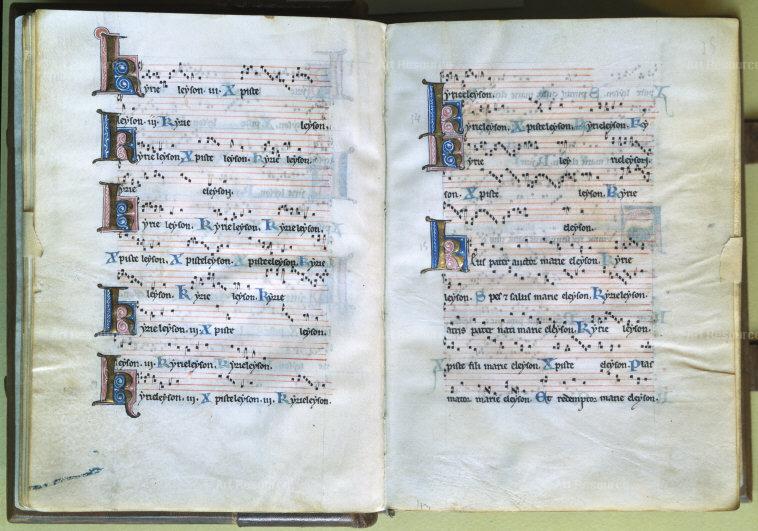 Kyrie leyson. iii. Xpiste
leyson. iii. Kyrie leyson.
Kyrie leyson Xpiste leyson. Kyrie leyson.
Kyrie eleyson.
Kyrie leyson. Kyrieleyson. Kyrieleyson.
Xpiste leyson. Xpisteleyson. Xpisteeleyson. Kyrie
leyson. Kyrie leyson. Kyrie
Kyrieleyson. iii. Xpiste leyson.
leyson. iii. Kyrieleyson. Kyrieleyson.
Kyrieleyson. iii. Xpisteleyson. iii. Kyrieleyson.
15
Kyrieleyson.
Kyrieleyson. Xpisteleyson. Kyrieleyson. Ky
Kyrie ley rieleyson.
son. Xpiste leyson. Kyrie
eleyson.
pater marie eleyson. Kyrie
leyson. Spes & salus marie eleyson. Kyrieleyson.
pater nati marie eleyson. Kyrie leyson.
Xpiste fili marie eleyson. Xpiste eleyson.
mator marie eleyson. Et redemptor marie eleyson.
Art Resource